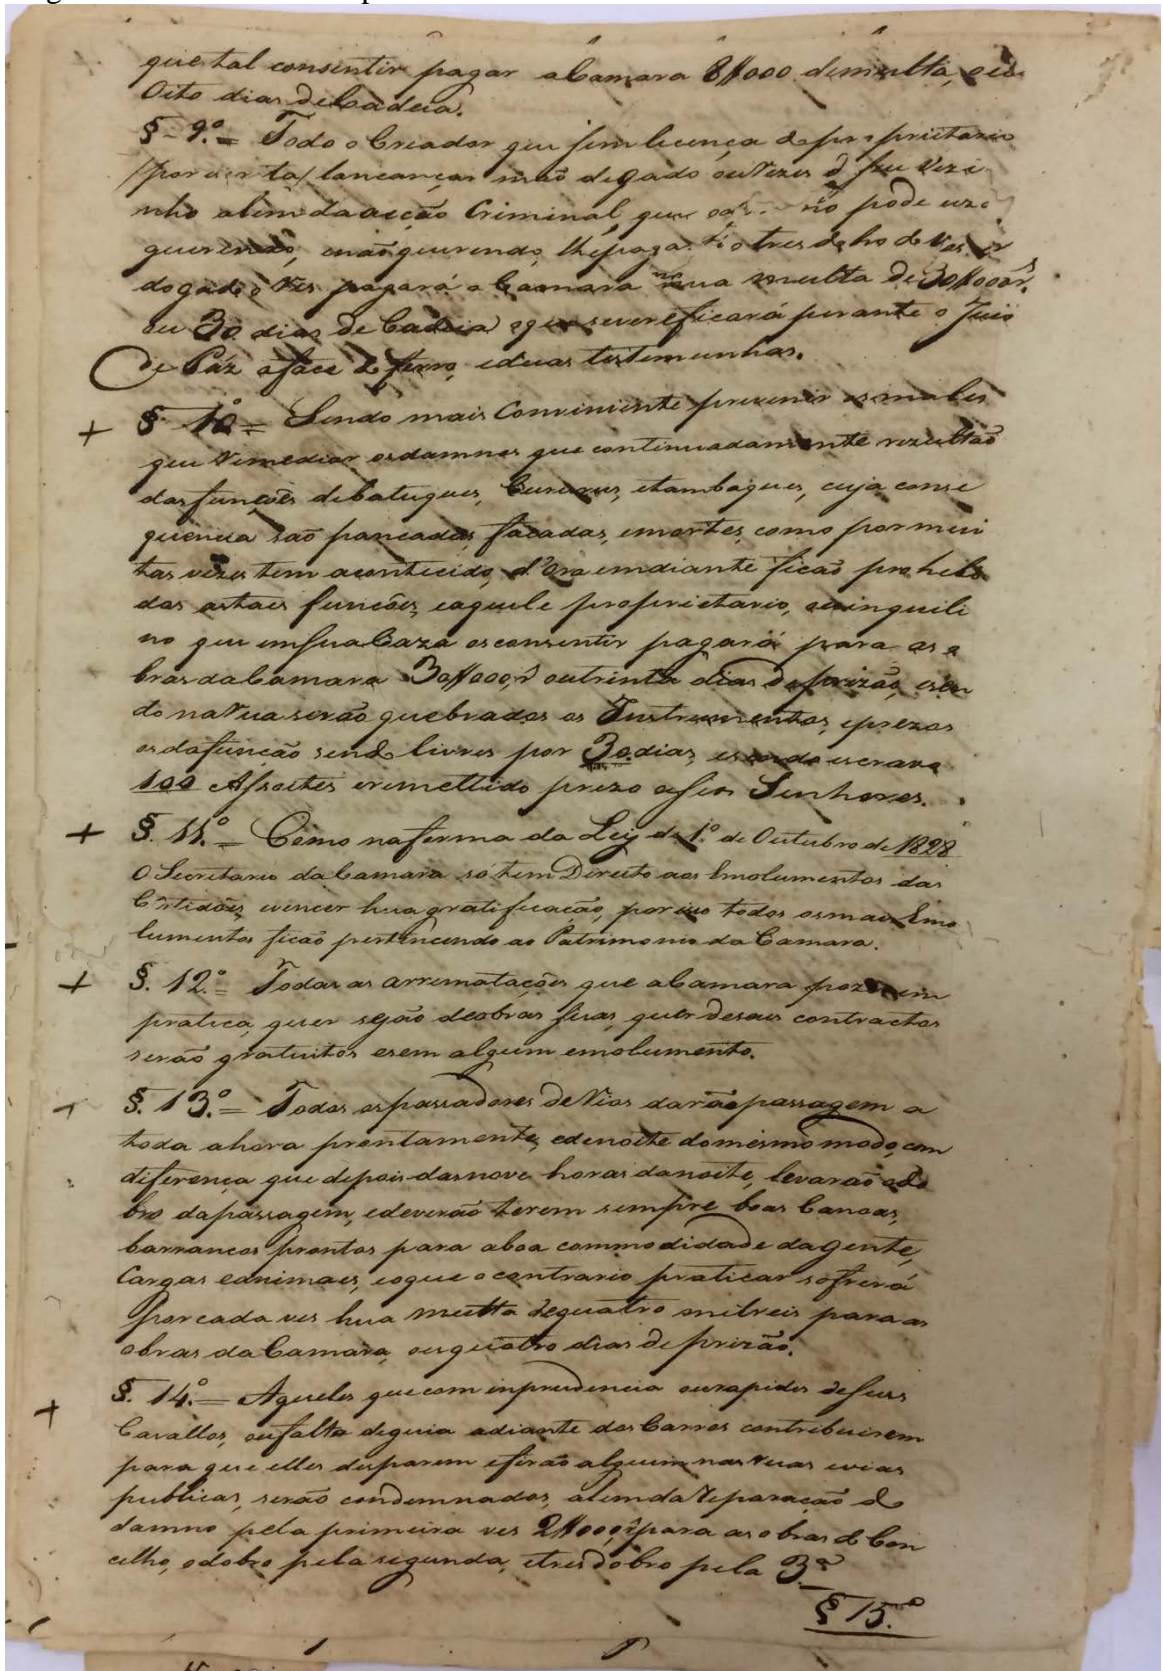 que tal consentir pagar a Camara 8$000 de multa, ou
Oito dias de Cadeia.
§ - 9.º = Todo o Creador que sem licença do proprietario
lançar mão de gado ou rezes d seu Vezi
nho alem da acção Criminal, que não pode
querendo, e não querendo, lhe pagará o tresdobro do Valor
do gado o Res pagará a Camara hua multa de 30$000 rs.
ou 30 dias de Cadeia o que se vereficará perante o Juis
de Páz a face de ferro, e duas testemunhas.
+ § 10 º = Sendo mais Conviniente prevenir os males
que remediar os damnos que continuadamente rezultão
das funções de batuques, Cururus, e tambaques, cuja conse
quencia são pancadas, facadas, e mortes, como por mui
tas vezes tem acontecido, d'Ora em diante ficão prohebi
das as taes funcões, e aquele proprietario, ou inquili
no que em sua Caza os consentir pagará para as o
bras da Camara 30$000 rs ou trinta dias de prizão, e sen
do na rua serão quebrados os Instrumentos, e prezos
os da função sendo livres por 30. dias, e sendo escravo
100 Assoites e remettido prezo a seos Senhores.
+ §. 11.º = Como na forma da Ley do 1.º de Outubro de 1828
O Secretario da Camara só tem Direito aos Emolumentos das
Certidões, e vencer hua gratificação, por isso todos os mais Emo
lumentos ficão pertencendo ao Patrimonio da Camara.
+ §. 12.º = Todas as arrematações que a Camara pozer em
pratica, quer sejão de obras suas, quer de seus contractos
serão gratuitos e sem algum emolumento.
- §. 13.º = Todos os passadores de Rios darão passagem a
toda a hora prontamente, e de noite do mesmo modo, com
diferença que depois das nove horas da noite, levarão o do
bro da passagem, e deverão terem sempre boas Canoas,
barrancos prontos para a boa commodidade da gente,
Cargas e animaes, e o que o contrario praticar sofrerá
por cada ves hua multa de quatro milreis para as
obras da Camara, ou quatro dias de prizão.
+ §. 14.º = Aqueles que com inprudencia ou rapides de seus
Cavallos, ou falta de guia adiante dos Carros contribuirem
para que elles disparem e firão alguem nas ruas e vias
publicas, serão condemnados, alem da reparação do
damno pela primeira ves 2$000 rs para as obras do Con
celho, o dobro pela segunda, e tresdobro pela 3.ª
§ 15.º